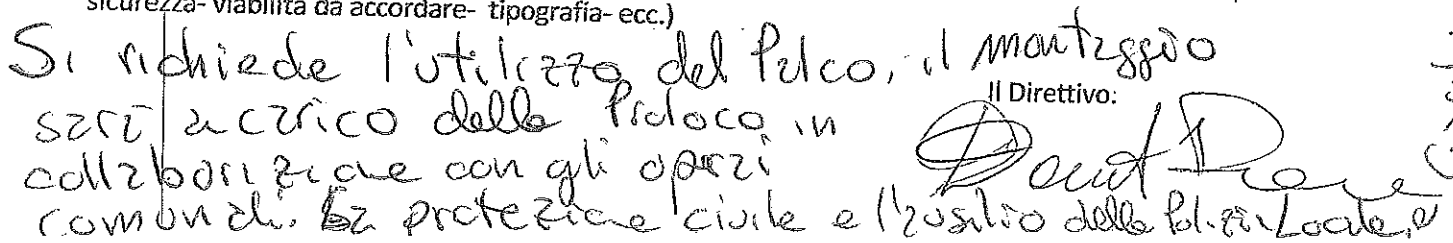 sicurezza- viabilità da accordare- tipografia- ecc.)
Si richiede l'utilizzo del Palco, il montaggio
Il Direttivo:
sarà a carico della Proloco in
collaborazione con gli operai
comunali. La protezione civile e l'ausilio della Polizia Locale, e